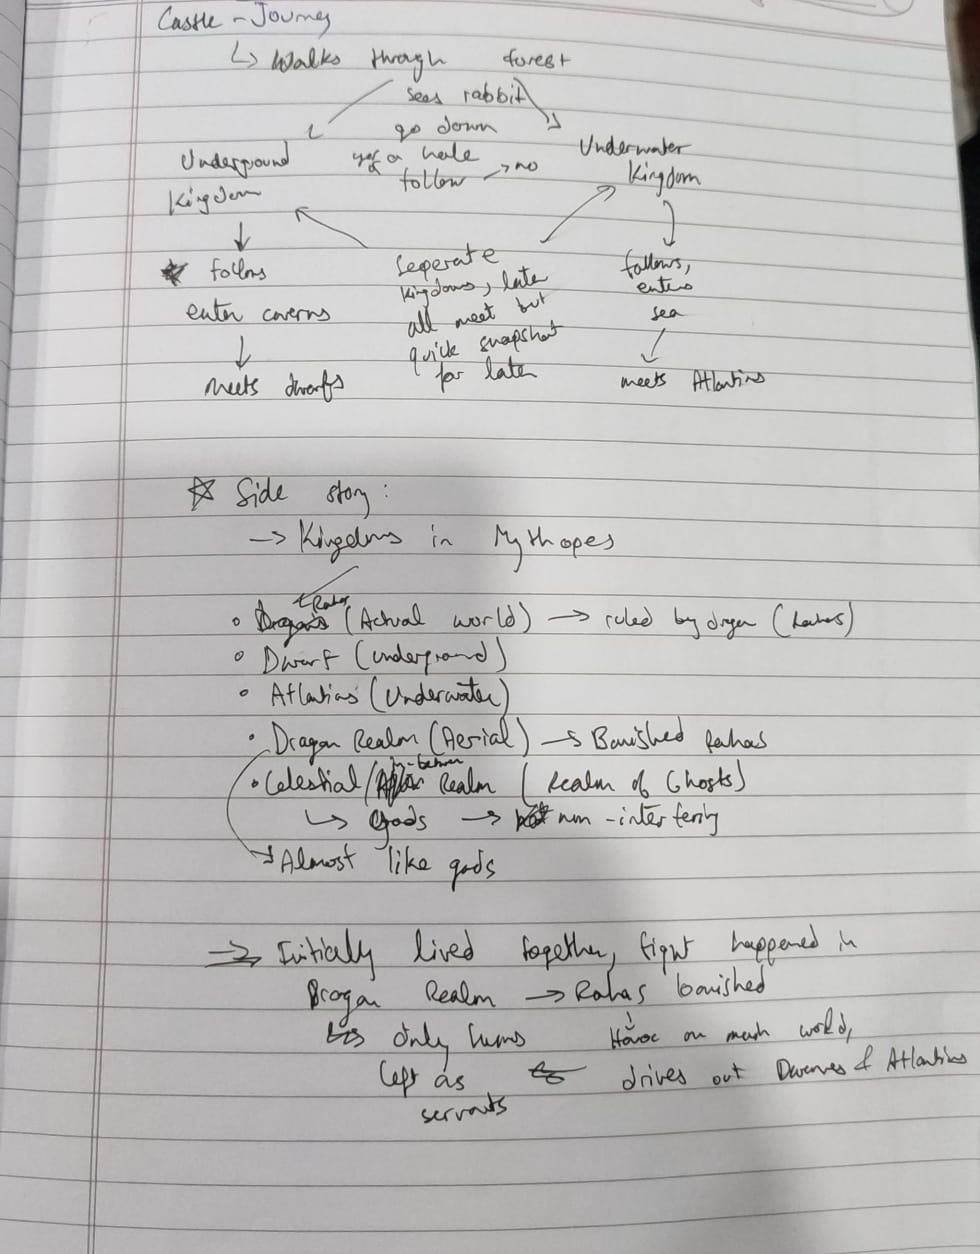 Castle - Journey
↳ Walks through forest
sees rabbit
go down
yes a hole
follow → no
Underground
Kingdom
Underwater
Kingdom
↓
follows
enter caverns
↓
Meets dwarfs
Seperate
kingdoms, late
all meet but
quick snapshot
for later
follows,
enters
sea
meets Atlantins
☆ Side story :
→ Kingdoms in Mythopes
• (Actual world) → ruled by
• Dwarf (underground)
• Atlantins (Underwater)
• Dragon Realm (Aerial) → Banished Rahas
• Celestial / in-between Realm (Realm of Ghosts)
↳ Gods → non-interfering
→ Almost like gods
→ Initially lived together, fight happened in
Dragon Realm → Rahas banished
↳ only hums
left as
servants
↓
Havoc on world,
drives out Dwarves & Atlantins